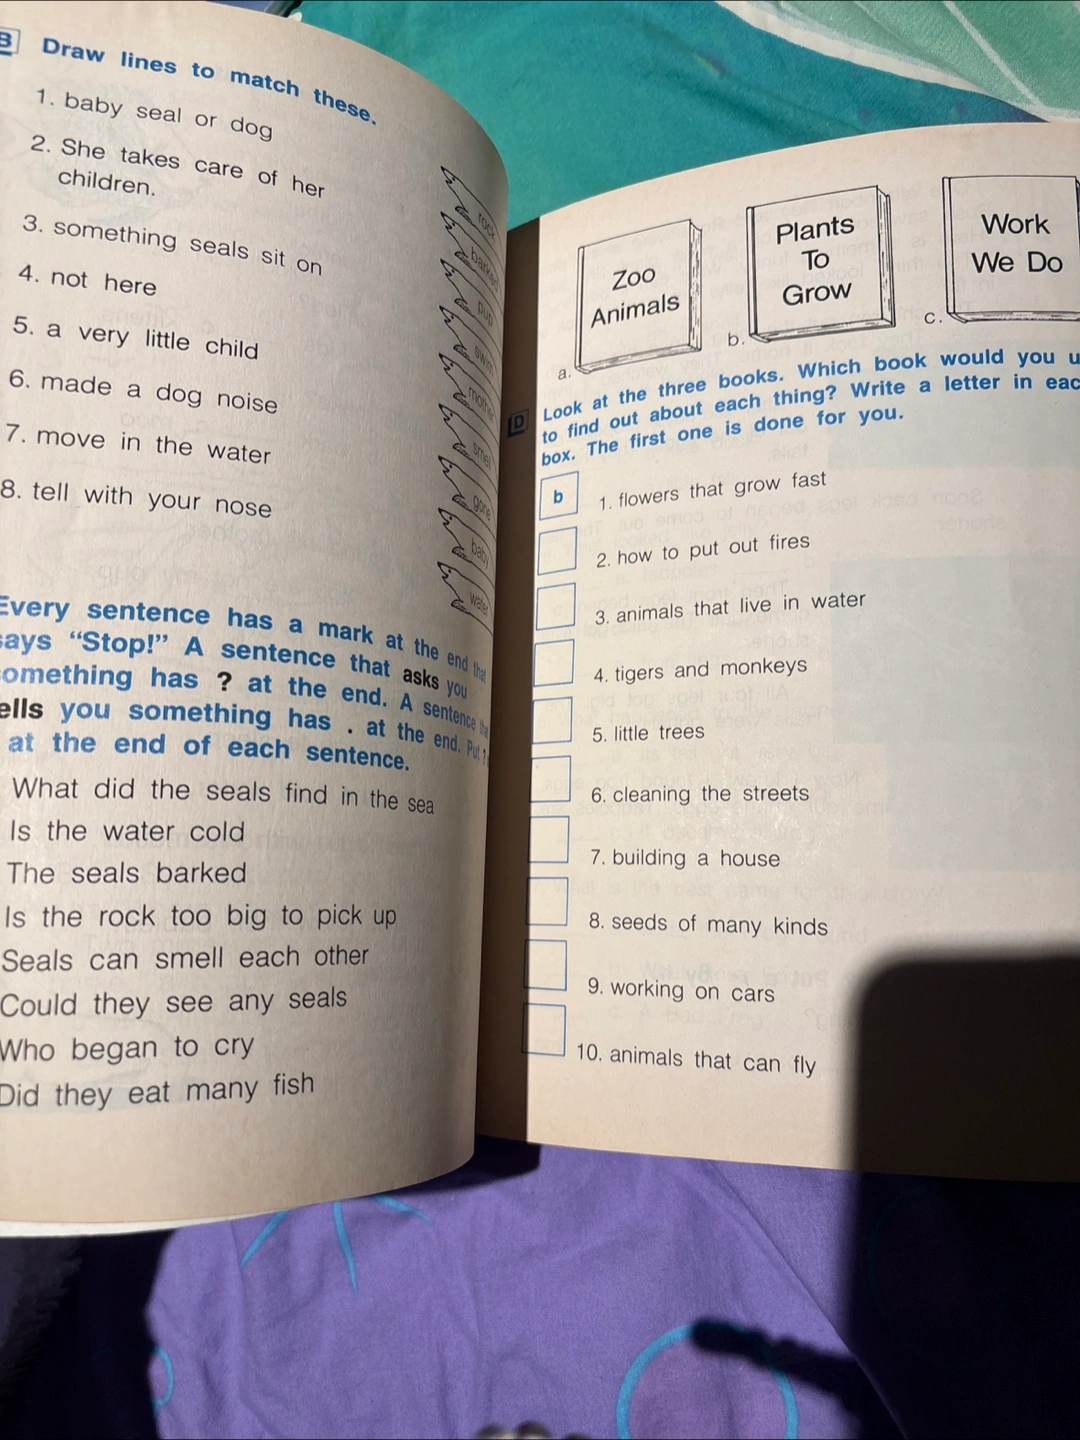 B Draw lines to match these.
1. baby seal or dog
2. She takes care of her
children.
3. something seals sit on
4. not here
5. a very little child
6. made a dog noise
7. move in the water
8. tell with your nose
rock
barked
pup
swim
mother
smell
gone
baby
water
Every sentence has a mark at the end that
says “Stop!” A sentence that asks you
something has ? at the end. A sentence
ells you something has . at the end. Put ?
at the end of each sentence.
What did the seals find in the sea
Is the water cold
The seals barked
Is the rock too big to pick up
Seals can smell each other
Could they see any seals
Who began to cry
Did they eat many fish
Zoo
Animals
a.
Plants
To
Grow
b.
Work
We Do
c.
D Look at the three books. Which book would you u
to find out about each thing? Write a letter in eac
box. The first one is done for you.
b 1. flowers that grow fast
2. how to put out fires
3. animals that live in water
4. tigers and monkeys
5. little trees
6. cleaning the streets
7. building a house
8. seeds of many kinds
9. working on cars
10. animals that can fly